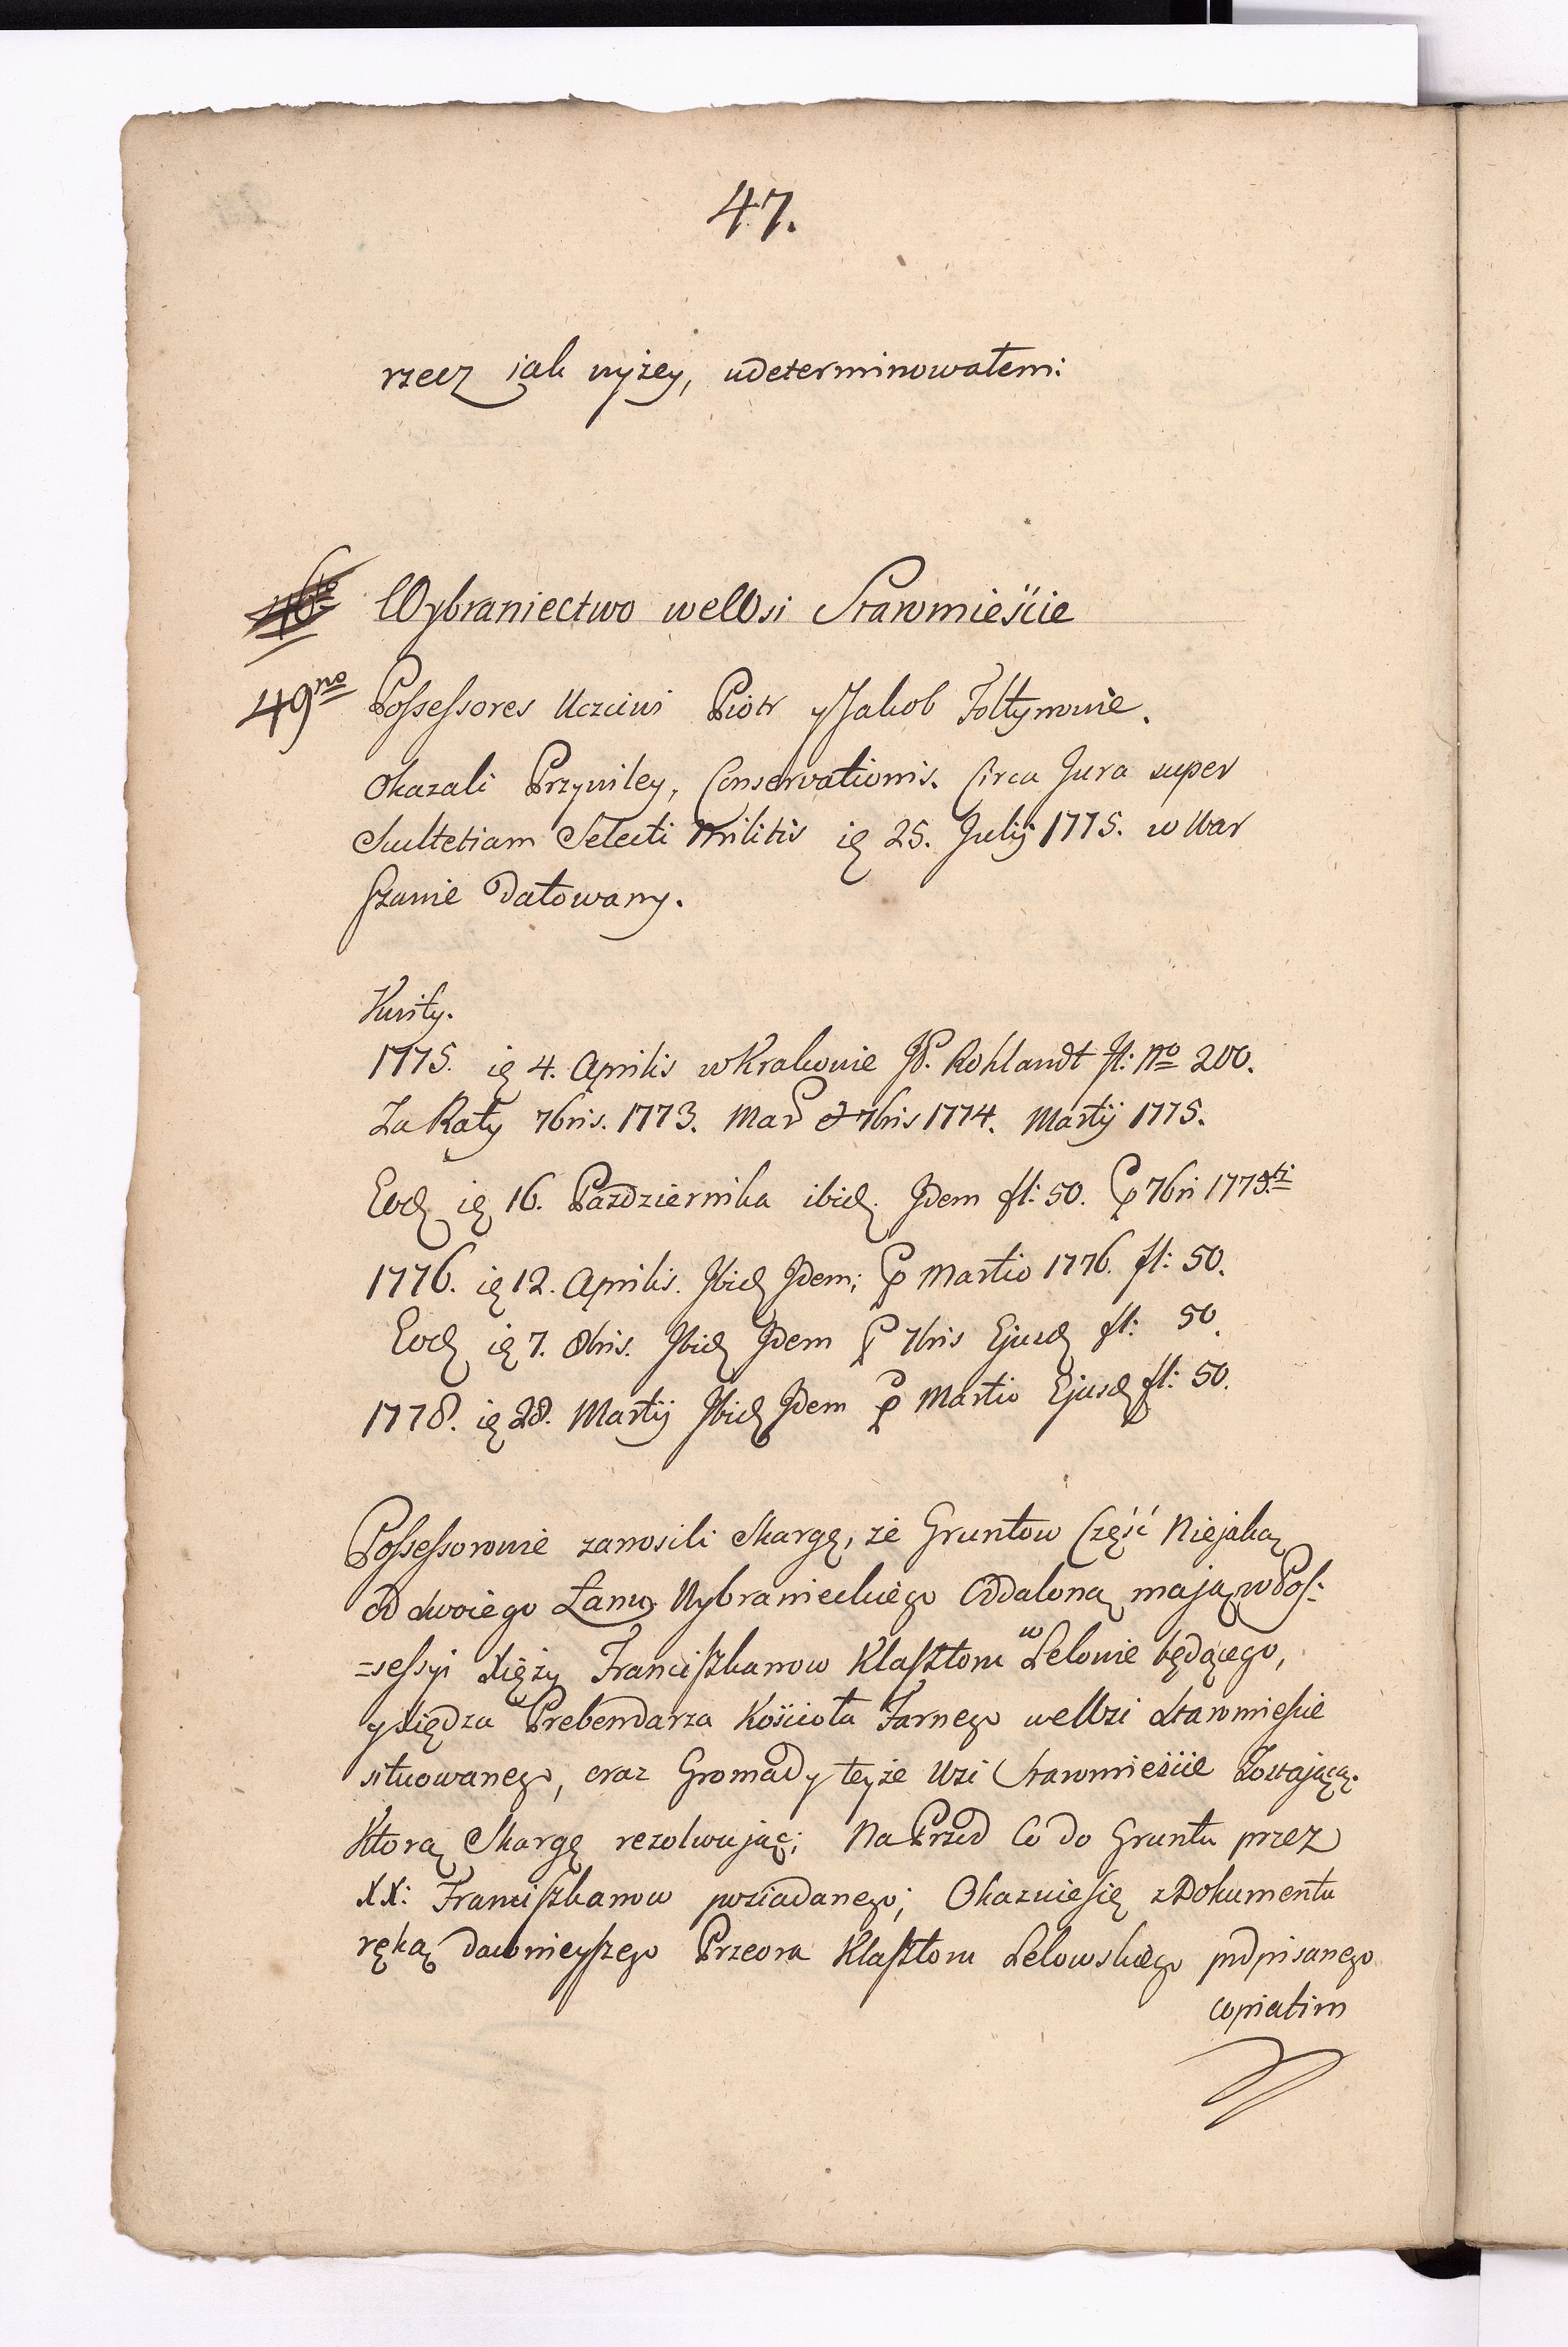 47.
rzecz iak wyżey, udeterminowałem:
Wybraniectwo we Wsi Staromieście
49no Possessores Uczciwi Piotr y Jakob Fołtynowie.
Okazali Przywiley, Conservationis. Circa Jura super
Scultetiam Selecti Militis ię 25. Julij 1775. w War
szawie Datowany.
Kwity.
1775. ię 4. Aprilis w Krakowie JP. Rohlandt fl: No 200.
Za Raty 7bris. 1773. Mar et 7bris 1774. Martij 1775.
Eod ię 16. Pazdziernika ibid Idem fl: 50. P 7bri 1775.ti
1776. ię 12. Aprilis. Ibid Idem; P Martio 1776. fl: 50.
Eod ię 7. 8bris. Ibid Idem P 7bris Ejusd fl: 50.
1778. ię 28. Martij Ibid Idem P Martio Ejusd fl: 50.
Possessorowie zanosili Skargę, że Gruntow Część Niejaką
od swoiego Łanu Wybranieckiego Oddaloną mają w Pos:
=sessyi Xięży Franciszkanow Klasztoru w Lelowie będącego,
y Xiędza Prebendarza Kościoła Farnego we Wsi Staromieście
situowanego, oraz Gromady teyże Wsi Staromieście Zostającą.
Ktorą Skargę rezolwując; Na Przod Co do Gruntu przez
XX: Franciszkanow posiadanego; Okazuie się z Dokumentu
ręką dawnieyszego Przeora Klasztoru Lelowskiego podpisanego
copiatim